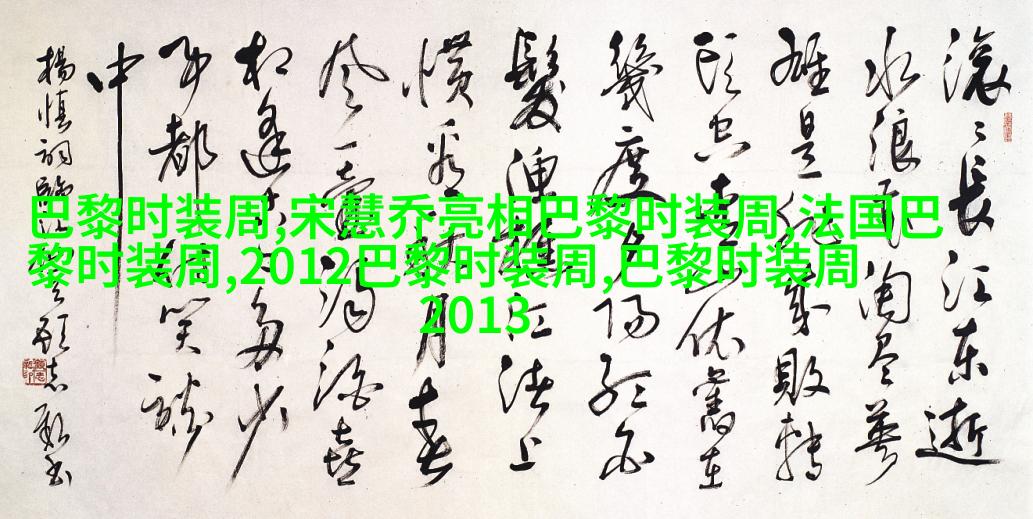 滚〻長江东逝
水浪花淘尽英
雄是非成敗轉
头空青山依舊在
幾度夕陽红白
髮漁樵江渚上
慣看秋月春
风一壶濁酒喜
相逢古今多少
事都付笑談
中
楊慎詞臨江仙
巴黎时装周,宋慧乔亮相巴黎时装周,法国巴
黎时装周,2012巴黎时装周,巴黎时装周
2013